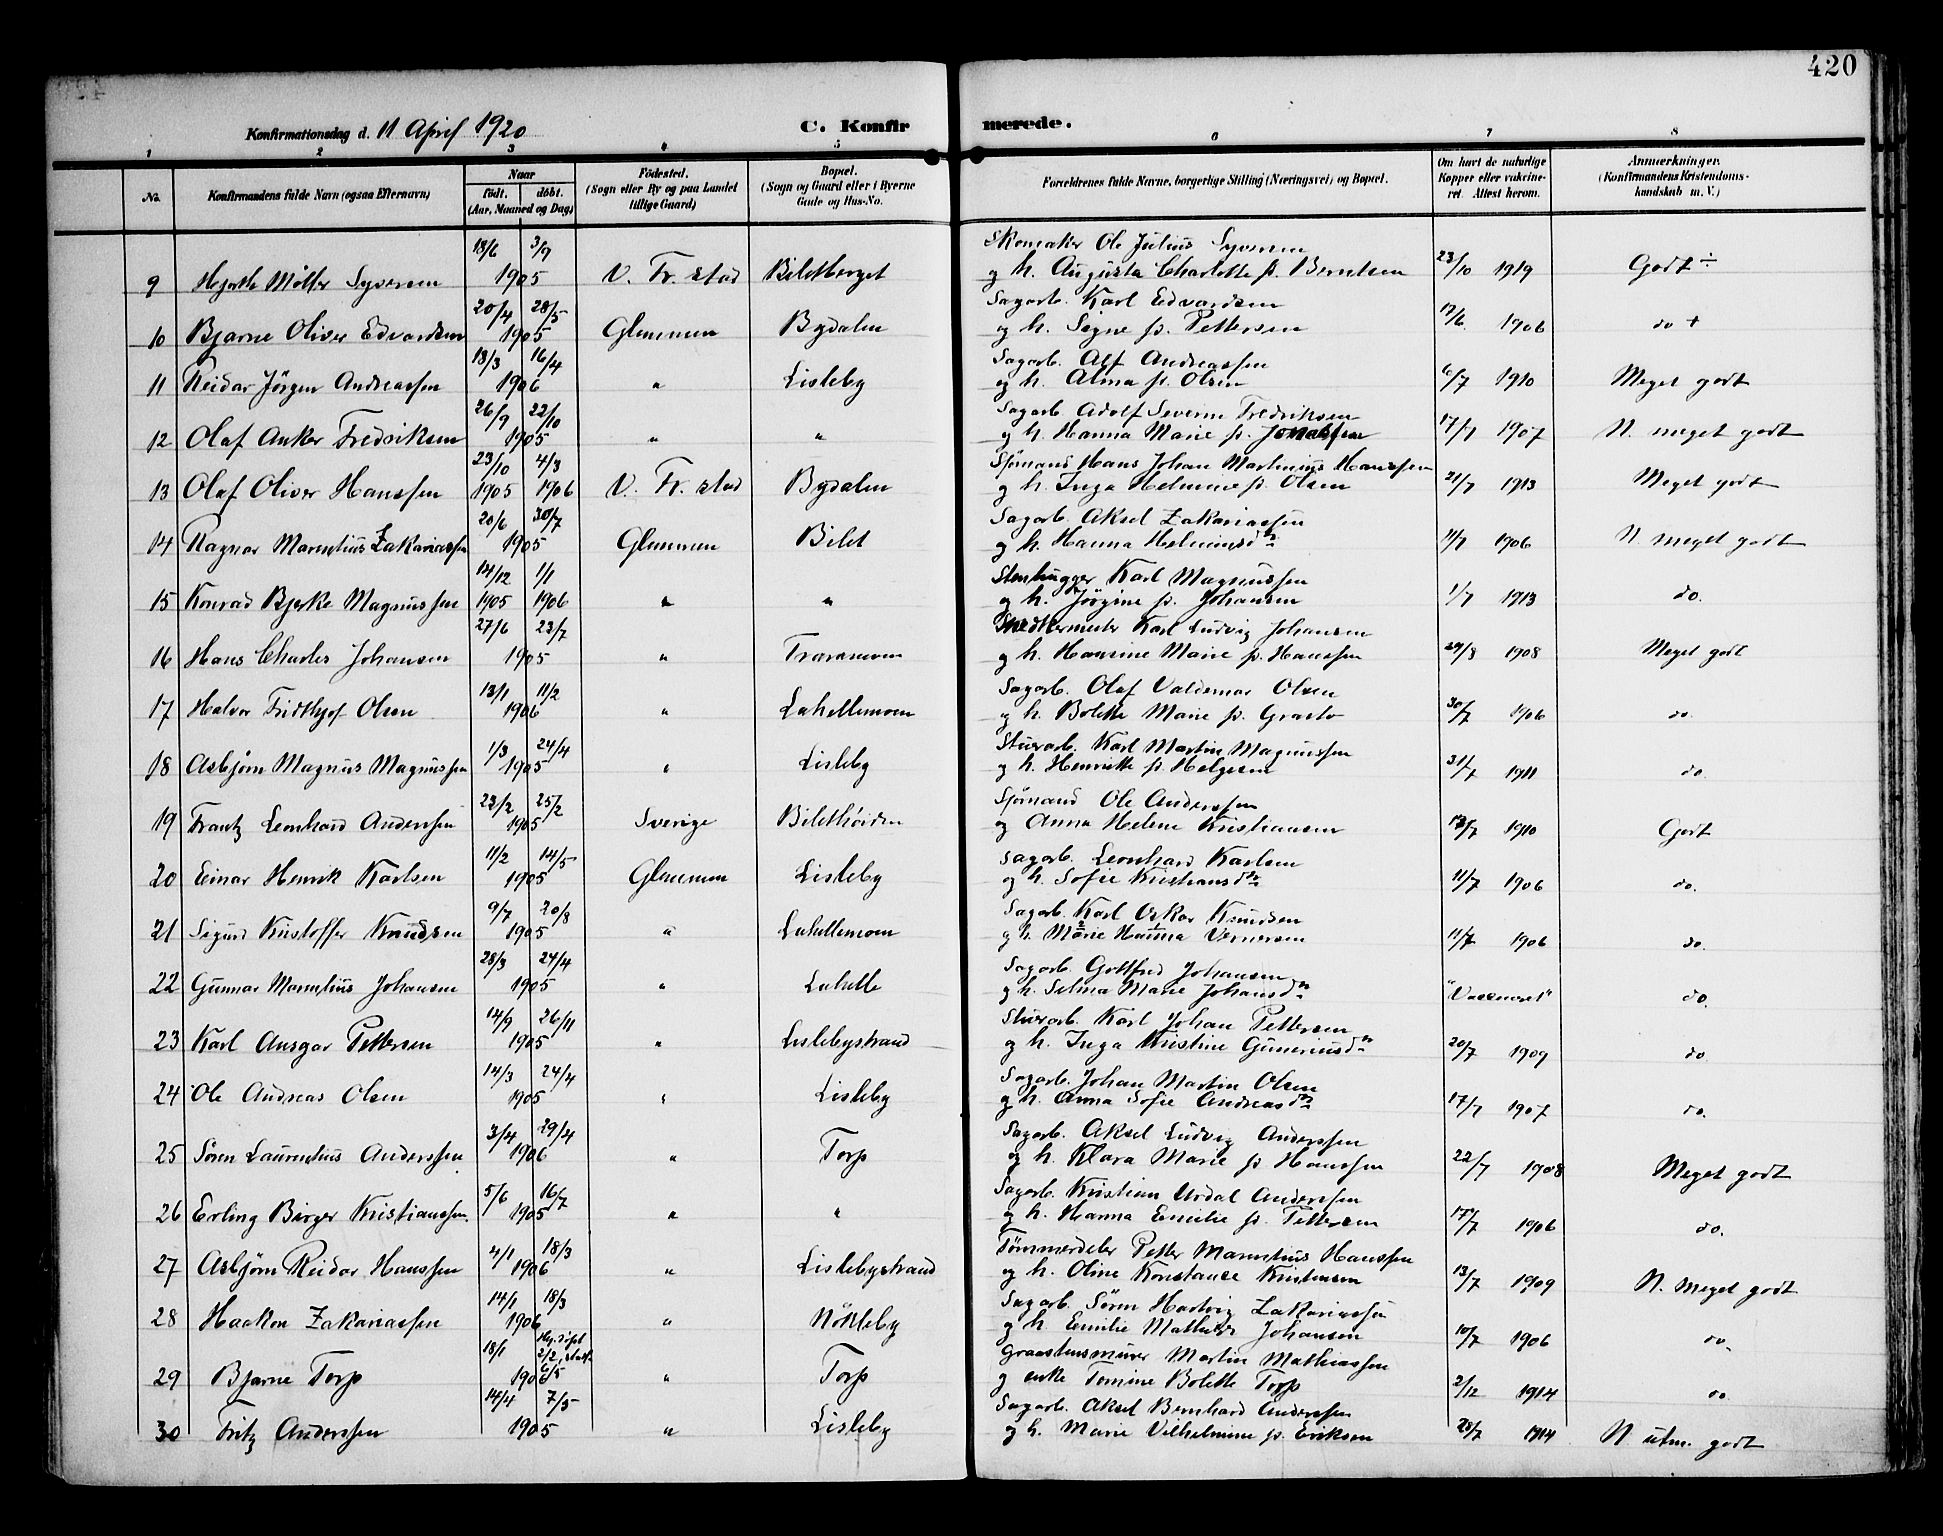 420
Konfirmationsdag d. 11 April 1920
C. Konfirmerede.
1 2 3 4 5 6 7 8
No. Konfirmandens fulde Navn (ogsaa Efternavn) Naar født. døbt. (Aar, Maaned og Dag) Fødested. (Sogn eller By og paa Landet tillige Gaard) Bopæl. (Sogn og Gaard eller i Byerne Gade og Hus-No. Forældrenes fulde Navne, borgerlige Stilling (Næringsvei) og Bopæl. Om havt de naturlige Kopper eller vakcineret. Attest herom. Anmærkninger. (Konfirmandens Kristendomskundskab m. V.)
18/6 3/9 Skomaker Ole Julius Syversen
9 Hjarth Møller Syversen 1905 V. Fr.stad Biletberget og h. Augusta Charlotte f. Berntsen 23/10 1919 Godt ÷
20/4 28/5 Sagarb. Karl Edvardsen
10 Bjarne Oliver Edvardsen 1905 Glemmen Bydalen og h. Signe f. Pettersen 12/6 1906 do +
18/3 16/4 Sagarb. Alf Andreassen
11 Reidar Jørgen Andreassen 1906 " Lisleby og h. Alma f. Olsen 6/7 1910 Meget godt
26/9 22/10 Sagarb. Adolf Severin Fredriksen
12 Olaf Anker Fredriksen 1905 " " og h. Hanna Marie f. Jonassen 17/7 1907 N. meget godt
23/10 4/3 Sjømand Hans Johan Martinius Hanssen
13 Olaf Oliver Hanssen 1905 1906 V. Fr. stad Bydalen og h. Inga Helmine f. Olsen 21/7 1913 Meget godt
20/6 30/7 Sagarb. Aksel Zakariassen
14 Ragnar Marentius Zakariassen 1905 Glemmen Bilet og h. Hanna Helminsdtr 11/7 1906 N. meget godt
14/12 1/1 Stenhugger Karl Magnussen
15 Konrad Bjerke Magnussen 1905 1906 " " og h. Jørgine f. Johansen 1/7 1913 do.
27/6 23/7 Snedkermester Karl Ludvig Johansen
16 Hans Charles Johansen 1905 " Traramoen og h. Hansine Marie f. Hanssen 29/8 1908 Meget godt
13/1 11/2 Sagarb. Olaf Valdemar Olsen
17 Halvor Fridthjof Olsen 1906 " Lahellemoen og h. Bolette Marie f. Grastv 30/7 1906 do.
1/3 24/4 Stuerarb. Karl Martin Magnussen
18 Asbjørn Magnus Magnussen 1905 " Lisleby og h. Henriette f. Helgesen 31/7 1911 do.
22/2 25/2 Sjømand Ole Anderssen
19 Frantz Leonhard Anderssen 1905 Sverige Bilethøiden og Anna Helene Kristiansen 13/7 1910 Godt
11/2 14/5 Sagarb. Leonhard Karlsen
20 Einar Henrik Karlsen 1905 Glemmen Lisleby og h. Sofie Kristiansdtr 11/7 1906 do.
9/7 20/8 Sagarb. Karl Oskar Knudsen
21 Sigurd Kristoffer Knudsen 1905 " Lahellemoen og h. Marie Hanna Vernersen 11/7 1906 do.
28/3 24/4 Sagarb. Gottfred Johansen
22 Gunnar Marentius Johansen 1905 " Lahelle og h. Selma Marie Johansdtr "Vaccineret" do.
14/9 26/11 Stuerarb. Karl Johan Pettersen
23 Karl Ansgar Pettersen 1905 " Lislebystrand og h. Inga Kristine Gunneriusdtr 20/7 1909 do
14/3 24/4 Sagarb. Johan Martin Olsen
24 Ole Andreas Olsen 1905 " Lisleby og h. Anna Sofie Andreasdtr 17/7 1907 do.
3/4 29/4 Sagarb. Aksel Ludvig Anderssen
25 Søren Laurentius Anderssen 1906 " Torp og h. Klara Marie f. Hanssen 22/7 1908 Meget godt
5/6 16/7 Sagarb. Kristian Urdal Anderssen
26 Erling Birger Kristianssen. 1905 " " og h. Hanna Emilie f. Pettersen 17/7 1906 do.
4/1 18/3 Tømmerdeler Petter Marentius Hanssen
27 Asbjørn Reidar Hanssen 1906 " Lislebystrand og h. Oline Konstance Kristensen 13/7 1909 N. Meget godt
14/1 18/3 Sagarb. Søren Hartvig Zakariassen
28 Haakon Zakariassen 1906 " Nøkleby og h. Emilie Mathilde Johansen 10/7 1906 do.
18/1 Hj.døpt 2/2, stadf. 6/5 Graastensmurer Martin Mathiassen
29 Bjarne Torp 1906 " Torp og enke Tomine Bolette Torp 2/12 1914 do
14/4 7/5 Sagarb. Aksel Bernhard Anderssen
30 Fritz Anderssen 1905 " Lisleby og h. Marie Vilhelmine f. Eriksen 28/7 1914 N. utm. godt